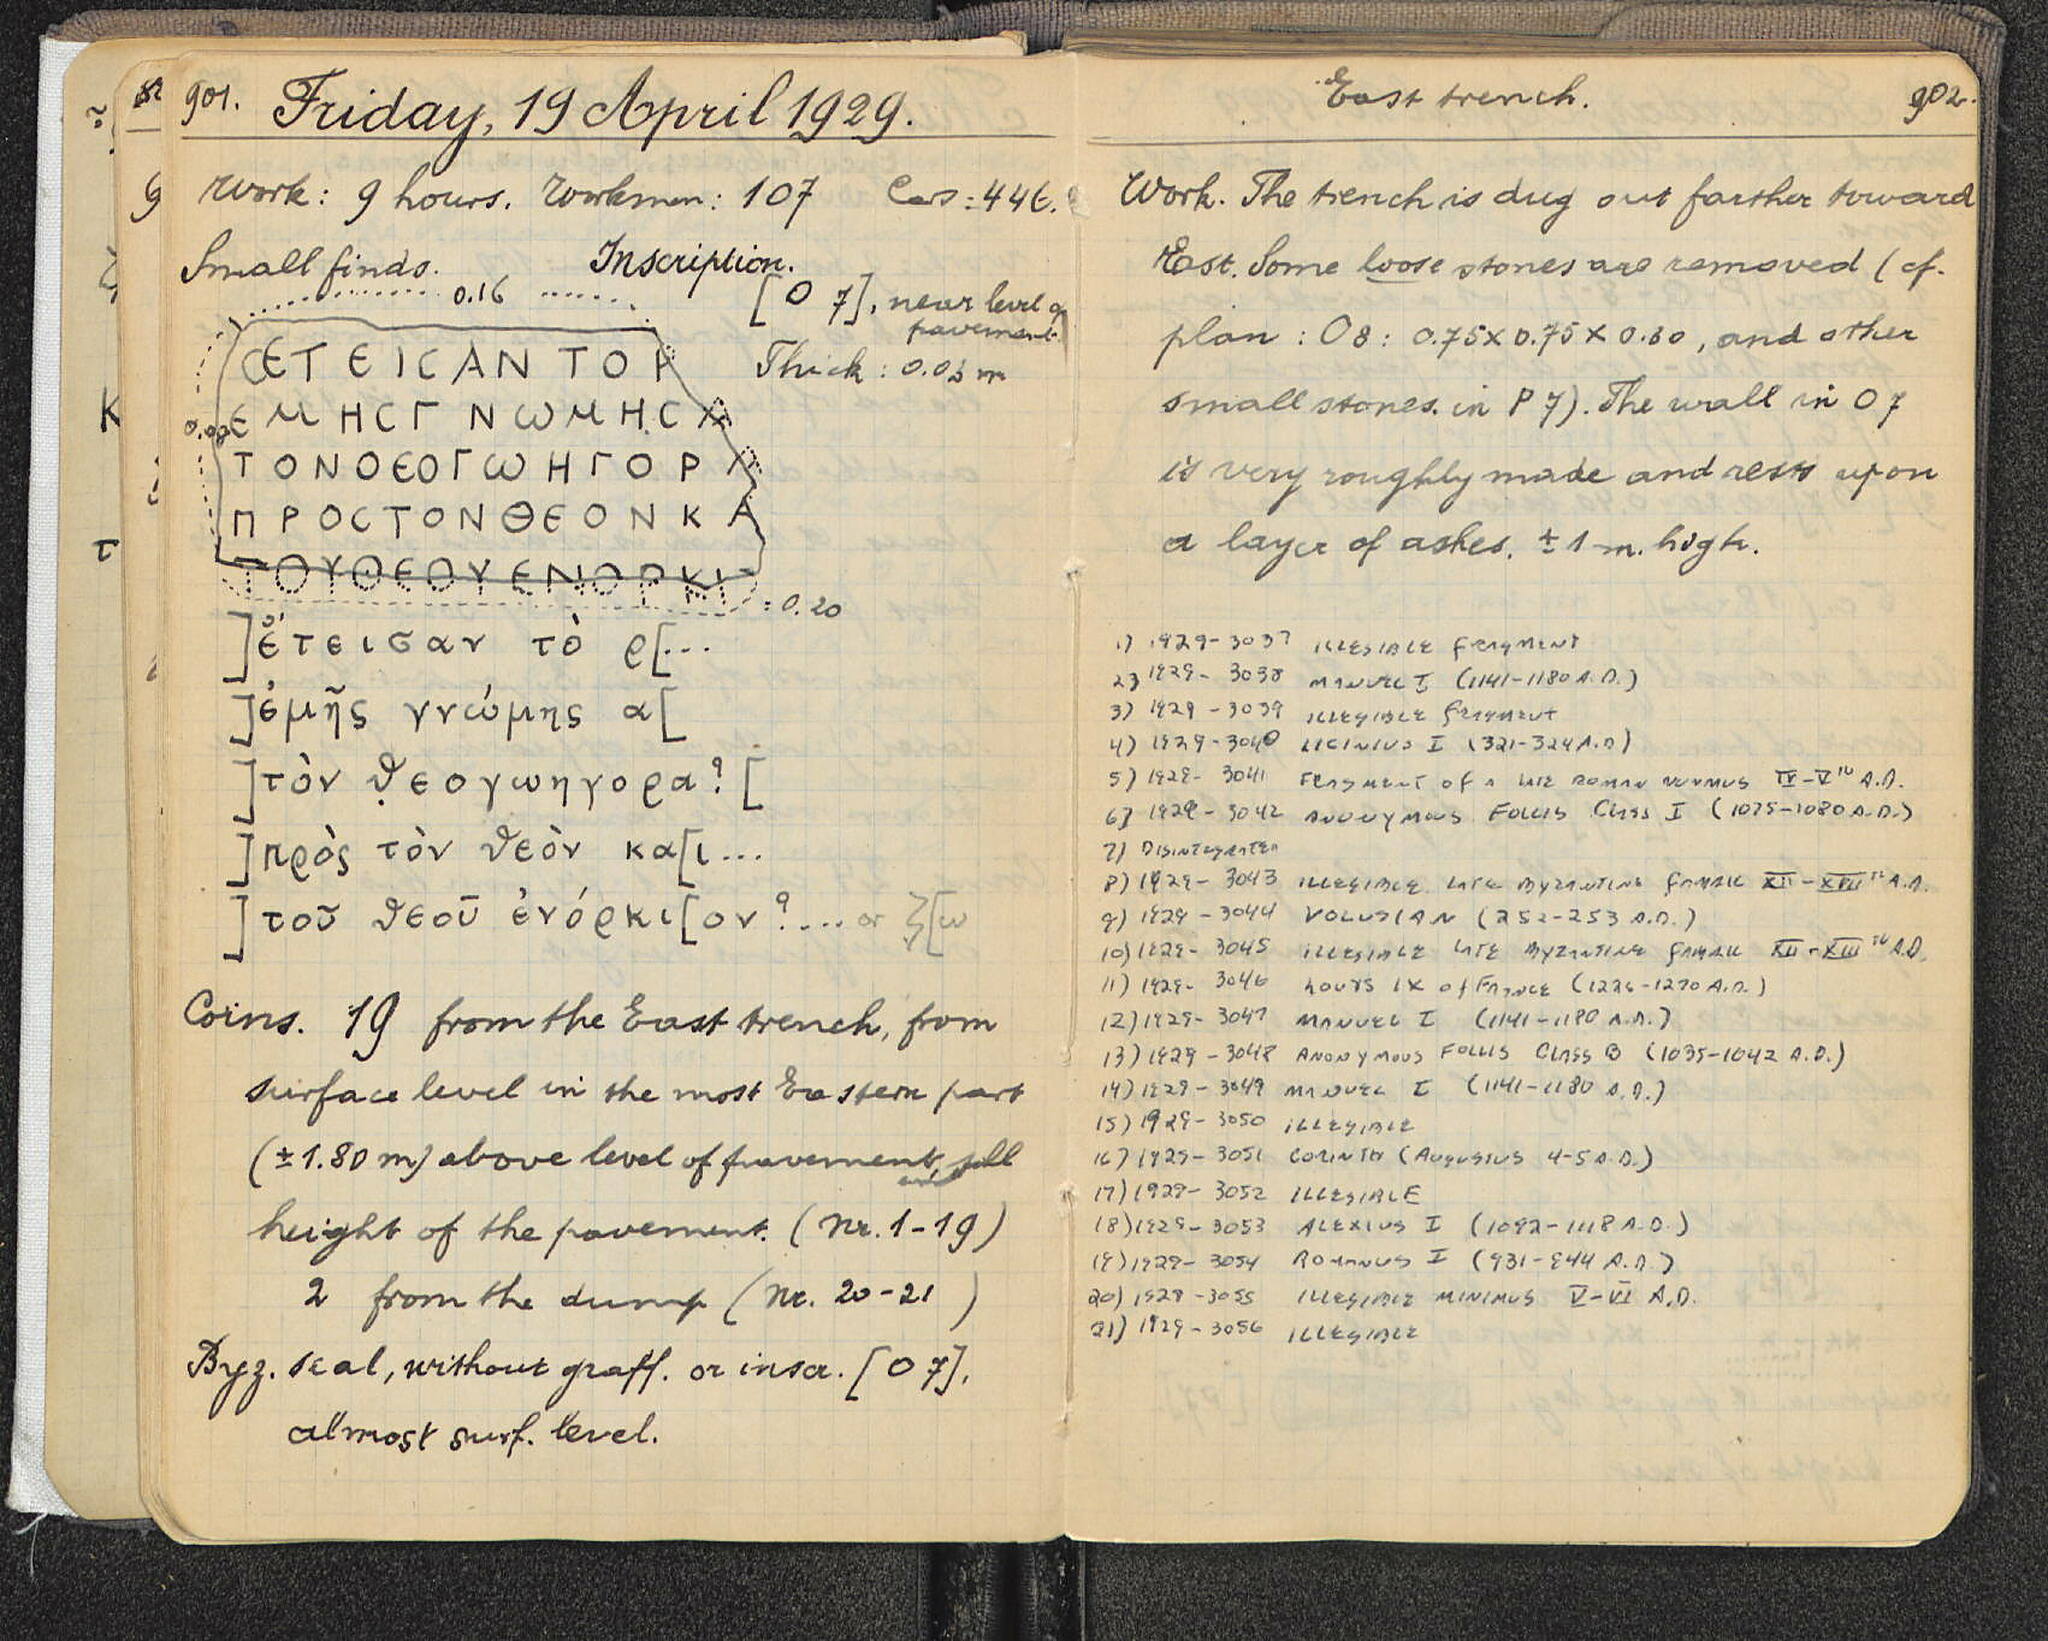 901. Friday, 19 April 1929.
Work: 9 hours. Workmen: 107 Cars: 446.
Small finds. Inscription.
0.16 [O 7], near level of pavement.
Thick: 0.03 m
0.08
ΕΤΕΙϹΑΝ ΤΟΡ
ΕΜΗϹΓΝωΜΗϹΑ
ΤΟΝΟΕΟΓωΗΓΟΡΑ
ΠΡΟϹΤΟΝΘΕΟΝΚΑ
ΤΟΥΘΕΟΥΕΝΟΡΚΙ
= 0.20
]έτεισαν τὸ ρ[...
]ἐμῆς γνώμης α[
]τὸν θ̣εογωηγορα? [
]πρὸς τὸν θεὸν κα[ι...
]τοῦ θεοῦ ἐνόρκι[ον?.... or ζ[ω
Coins. 19 from the East trench, from
surface level in the most Eastern part
(±1.80 m) above level of pavement, till
height of the pavement. (Nr. 1-19)
2 from the dump (Nr. 20-21)
Byz. seal, without graff. or inscr. [O 7],
almost surf. level.
East trench. 902.
Work. The trench is dug out farther toward
East. Some loose stones are removed (cf.
plan: O8: 0.75 x 0.75 x 0.30, and other
small stones in P 7). The wall in O 7
is very roughly made and rests upon
a layer of ashes, ± 1 m. high.
1) 1929-3037 ILLEGIBLE FRAGMENT
2) 1929-3038 MANUEL I (1141-1180 A.D.)
3) 1929-3039 ILLEGIBLE FRAGMENT
4) 1929-3040 LICINIUS I (321-324 A.D)
5) 1929-3041 FRAGMENT OF A LATE ROMAN NUMMUS IV-VTH A.D.
6) 1929-3042 ANONYMOUS FOLLIS CLASS I (1075-1080 A.D.)
7) DISINTEGRATED
8) 1929-3043 ILLEGIBLE LATE BYZANTINE XII-XIIITH A.D.
9) 1929-3044 VOLUSIAN (252-253 A.D.)
10) 1929-3045 ILLEGIBLE LATE BYZANTINE XII-XIIITH A.D.
11) 1929-3046 LOUIS IX OF FRANCE (1226-1270 A.D.)
12) 1929-3047 MANUEL I (1141-1180 A.D.)
13) 1929-3048 ANONYMOUS FOLLIS CLASS B (1035-1042 A.D.)
14) 1929-3049 MANUEL I (1141-1180 A.D.)
15) 1929-3050 ILLEGIBLE
16) 1929-3051 CORINTH (AUGUSTUS 4-5 A.D.)
17) 1929-3052 ILLEGIBLE
18) 1929-3053 ALEXIUS I (1092-1118 A.D.)
19) 1929-3054 ROMANUS I (931-944 A.D.)
20) 1929-3055 ILLEGIBLE MINIMUS V-VI A.D.
21) 1929-3056 ILLEGIBLE